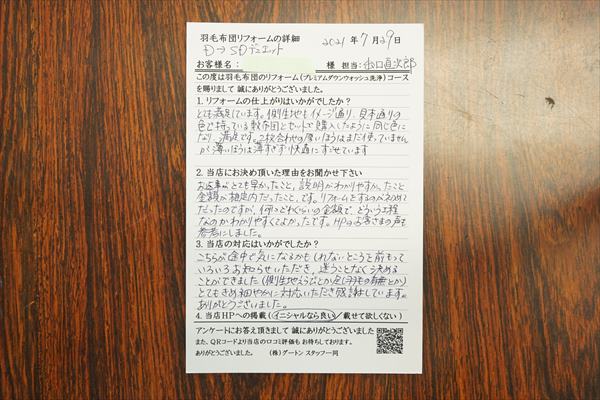 羽毛布団リフォームの詳細 2021年7月29日
D→SDデュエット
お客様名: 様 担当:永口直次郎
この度は羽毛布団のリフォーム(プレミアムダウンウォッシュ洗浄)コース
を賜りまして 誠にありがとうございました。
1. リフォームの仕上がりはいかがでしたか?
とても満足しています。側生地もイメージ通り、見本通りの
色で持っている敷布団とセットで購入したように同じ色に
なり、満足です。2枚合わせの厚いほうはまだ使っていません
が、薄いほうは薄すぎず快適にすごせています
2. 当店にお決め頂いた理由をお聞かせ下さい
お返事がとても早かったこと、説明がわかりやすかったこと
金額が想定内だったこと、です。リフォームをするのが初めて
だったのですが、何つどれくらいの金額で、どういう工程
なのかわかりやすくてよかったです。HPのお客さまの声も
参考にしました。
3. 当店の対応はいかがでしたか?
こちらが途中で気になるかもしれないところを前もって
いろいろお知らせいただき、迷うことなく決める
ことができました(側生地えらびとか足し羽毛の有無とか)
とてもきめ細やかに対応いただき感謝しています。
ありがとうございました。
4. 当店HPへの掲載(イニシャルなら良い/載せて欲しくない)
アンケートにお答え頂きまして 誠にありがとうございました
また、QRコードより当店の口コミ評価も お待ちしております。
ありがとうございました。 (株)グートン スタッフ一同